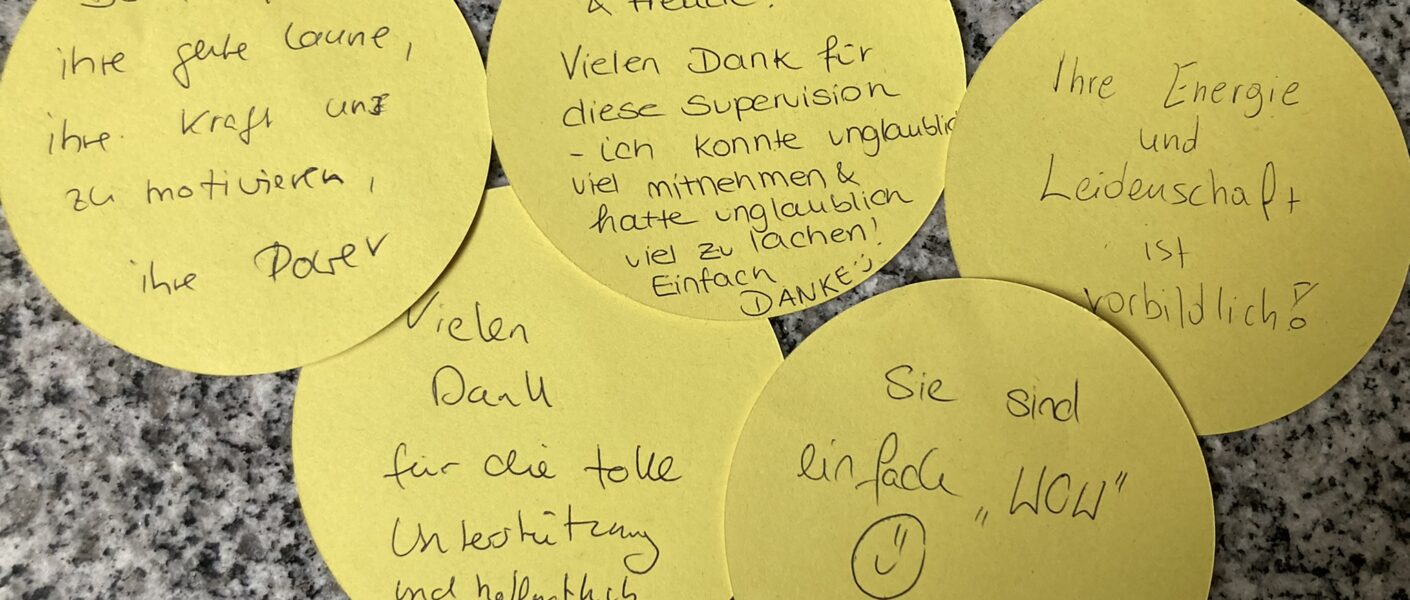 ihre gute Laune,
ihre Kraft uns
zu motivieren,
ihre Power
& Freude!
Vielen Dank für
diese Supervision
- ich konnte unglaublic
viel mitnehmen &
hatte unglaublich
viel zu lachen!
Einfach
DANKE
Ihre Energie
und
Leidenschaft
ist
vorbildlich!
Vielen
Dank
für die tolle
Unterstützung
und hoffentlich
Sie sind
einfach
„WOW"